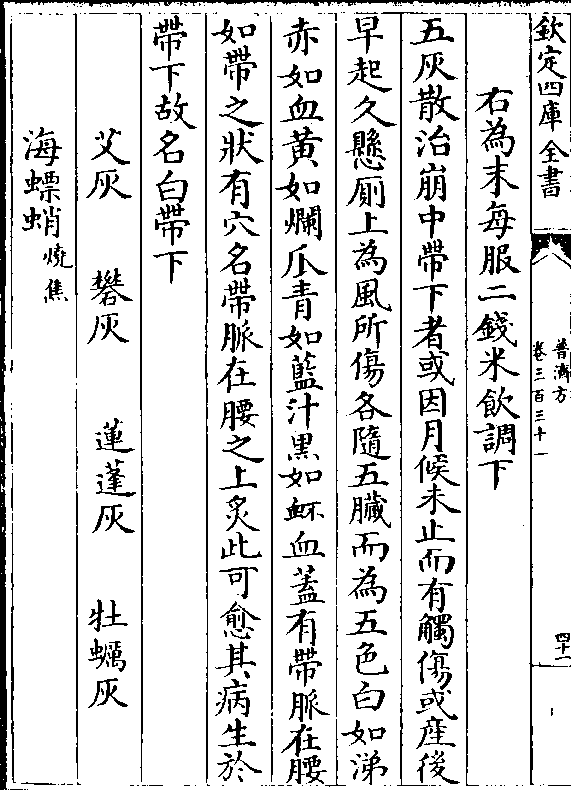 欽定四庫全書
普濟方
卷三百三十一
四十一
右為末每服二錢米飲調下
五灰散治崩中帶下者或因月候未止而有觸傷或産後
早起久懸厠上為風所傷各隨五臟而為五色白如涕
赤如血黃如爛瓜青如藍汁黑如衃血蓋有帶脈在腰
如帶之狀有穴名帶脈在腰之上炙此可愈其病生於
帶下故名白帶下
艾灰 礬灰 蓮蓬灰 牡蠣灰
海螵蛸燒焦